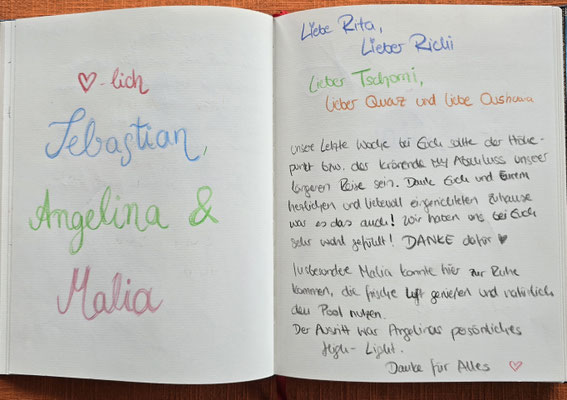 ♡-lich
Sebastian,
Angelina &
Malia
Liebe Rita,
Lieber Richi
Lieber Tschomi,
lieber Quarz und liebe Oushawa
unsere Letzte Woche bei Euch sollte der Höhe-
punkt bzw. der krönende Abschluss unserer
längeren Reise sein. Dank Euch und Eurem
herzlichen und liebevoll eingerichteten Zuhause
war es das auch! Wir haben uns bei Euch
sehr wohl gefühlt! DANKE dafür ♥
Insbesondere Malia konnte hier zur Ruhe
kommen, die frische Luft genießen und natürlich
den Pool nutzen.
Der Ausritt war Angelinas persönliches
High-Light.
Danke für Alles ♡